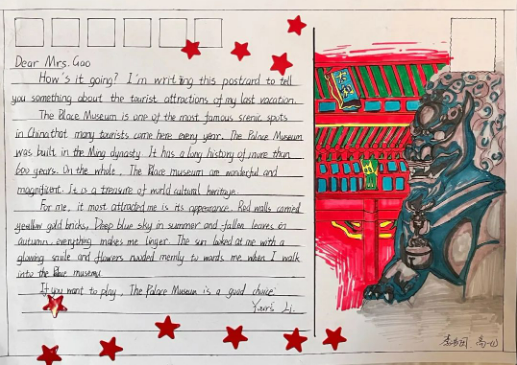 Dear Mrs. Goo
How's it going? I'm writing this postcard to tell
you something about the tourist attractions of my last vacation.
The Place Museum is one of the most famous scenic spots
in China that many tourists come here every year. The Palace Museum
was built in the Ming dynasty. It has a long history of more than
600 years. On the whole, The Place museum are wonderful and
magnificent. It is a treasure of world cultural heritage.
For me, it most attracted me is its appearance. Red walls carried
yeellow gold bricks, Deep blue sky in summer and fallen leaves in
autumn. everything makes me linger. The sun looked at me with a
glowing smile and flowers nodded merrily to wards me when I walk
into the museum
If you want to play, The Palace Museum is a good choice.
Yours Li.